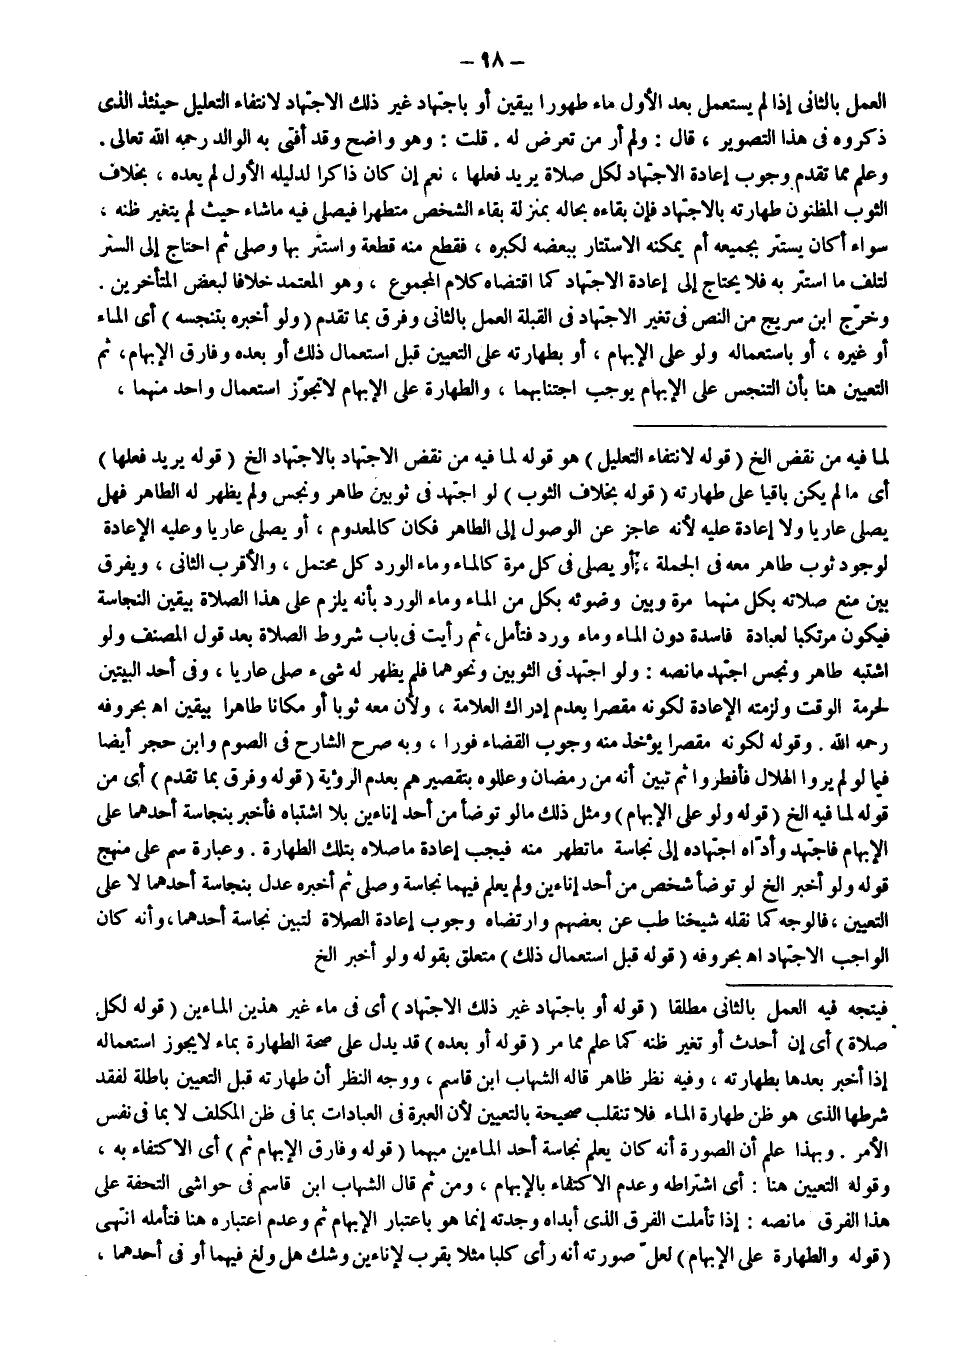 – ٩٨ –
العمل بالثانى إذا لم يستعمل بعد الأول ماء طهورا بيقين أو باجتهاد غير ذلك الاجتهاد لانتفاء التعليل حينئذ الذى
ذكروه فى هذا التصوير ، قال : ولم أر من تعرض له . قلت : وهو واضح وقد أفتى به الوالد رحمه الله تعالى .
وعلم مما تقدم وجوب إعادة الاجتهاد لكل صلاة يريد فعلها ، نعم إن كان ذاكرا لدليله الأول لم يعده ، بخلاف
الثوب المظنون طهارته بالاجتهاد فإن بقاءه بحاله بمنزلة بقاء الشخص متطهرا فيصلى فيه ماشاء حيث لم يتغير ظنه ،
سواء أكان يستتر بجميعه أم يمكنه الاستتار ببعضه لكبره ، فقطع منه قطعة واستتر بها وصلى ثم احتاج إلى الستر
لتلف ما استتر به فلا يحتاج إلى إعادة الاجتهاد كما اقتضاه كلام المجموع ، وهو المعتمد خلافا لبعض المتأخرين .
وخرّج ابن سريج من النص فى تغير الاجتهاد فى القبلة العمل بالثانى وفرق بما تقدم ( ولو أخبره بتنجسه ) أى الماء
أو غيره ، أو باستعماله ولو على الإبهام ، أو بطهارته على التعيين قبل استعمال ذلك أو بعده وفارق الإبهام، ثم
التعيين هنا بأن التنجس على الإبهام يوجب اجتنابهما ، والطهارة على الإبهام لاتجوّز استعمال واحد منهما ،
لما فيه من نقض الخ ( قوله لانتفاء التعليل ) هو قوله لما فيه من نقض الاجتهاد بالاجتهاد الخ ( قوله يريد فعلها )
أى مالم يكن باقيا على طهارته ( قوله بخلاف الثوب ) لو اجتهد فى ثوبين طاهر ونجس ولم يظهر له الطاهر فهل
يصلى عاريا ولا إعادة عليه لأنه عاجز عن الوصول إلى الطاهر فكان كالمعدوم ، أو يصلى عاريا وعليه الإعادة
لوجود ثوب طاهر معه فى الجملة ، أو يصلى فى كل مرة كالماء وماء الورد كل محتمل ، والأقرب الثانى ، ويفرق
بين منع صلاته بكل منهما مرة وبين وضوئه بكل من الماء وماء الورد بأنه يلزم على هذا الصلاة بيقين النجاسة
فيكون مرتكبا لعبادة فاسدة دون الماء وماء ورد فتأمل، ثم رأيت فى باب شروط الصلاة بعد قول المصنف ولو
اشتبه طاهر ونجس اجتهد مانصه : ولو اجتهد فى الثوبين ونحوهما فلم يظهر له شىء صلى عاريا ، وفى أحد البيتين
لحرمة الوقت ولزمته الإعادة لكونه مقصرا بعدم إدراك العلامة ، ولأن معه ثوبا أو مكانا طاهرا بيقين اه بحروفه
رحمه الله . وقوله لكونه مقصرا يؤخذ منه وجوب القضاء فورا ، وبه صرح الشارح فى الصوم وابن حجر أيضا
فيما لو لم يروا الهلال فأفطروا ثم تبين أنه من رمضان وعللوه بتقصيرهم بعدم الرؤية ( قوله وفرق بما تقدم ) أى من
قوله لما فيه الخ ( قوله ولو على الإبهام ) ومثل ذلك مالو توضأ من أحد إناءين بلا اشتباه فأخبر بنجاسة أحدهما على
الإبهام فاجتهد وأدّاه اجتهاده إلى نجاسة ماتطهر منه فيجب إعادة ماصلاه بتلك الطهارة . وعبارة سم على منهج
قوله ولو أخبر الخ لو توضأ شخص من أحد إناءين ولم يعلم فيهما نجاسة وصلى ثم أخبره عدل بنجاسة أحدهما لا على
التعيين ، فالوجه كما نقله شيخنا طب عن بعضهم وارتضاه وجوب إعادة الصلاة لتبين نجاسة أحدهما، وأنه كان
الواجب الاجتهاد اه بحروفه ( قوله قبل استعمال ذلك ) متعلق بقوله ولو أخبر الخ
فيتجه فيه العمل بالثانى مطلقا ( قوله أو باجتهاد غير ذلك الاجتهاد ) أى فى ماء غير هذين الماءين ( قوله لكل
صلاة ) أى إن أحدث أو تغير ظنه كما علم مما مر ( قوله أو بعده ) قد يدل على صحة الطهارة بماء لايجوز استعماله
إذا أخبر بعدها بطهارته ، وفيه نظر ظاهر قاله الشهاب ابن قاسم ، ووجه النظر أن طهارته قبل التعيين باطلة لفقد
شرطها الذى هو ظن طهارة الماء فلا تنقلب صحيحة بالتعيين لأن العبرة فى العبادات بما فى ظن المكلف لا بما فى نفس
الأمر . وبهذا علم أن الصورة أنه كان يعلم نجاسة أحد الماءين مبهما ( قوله وفارق الإبهام ثم ) أى الاكتفاء به ،
وقوله التعيين هنا : أى اشتراطه وعدم الاكتفاء بالإبهام ، ومن ثم قال الشهاب ابن قاسم فى حواشى التحفة على
هذا الفرق مانصه : إذا تأملت الفرق الذى أبداه وجدته إنما هو باعتبار الإبهام ثم وعدم اعتباره هنا فتأمله انتهى
( قوله والطهارة على الإبهام ) لعلّ صورته أنه رأى كلبا مثلا بقرب لإناءين وشك هل ولغ فيهما أو فى أحدهما ،